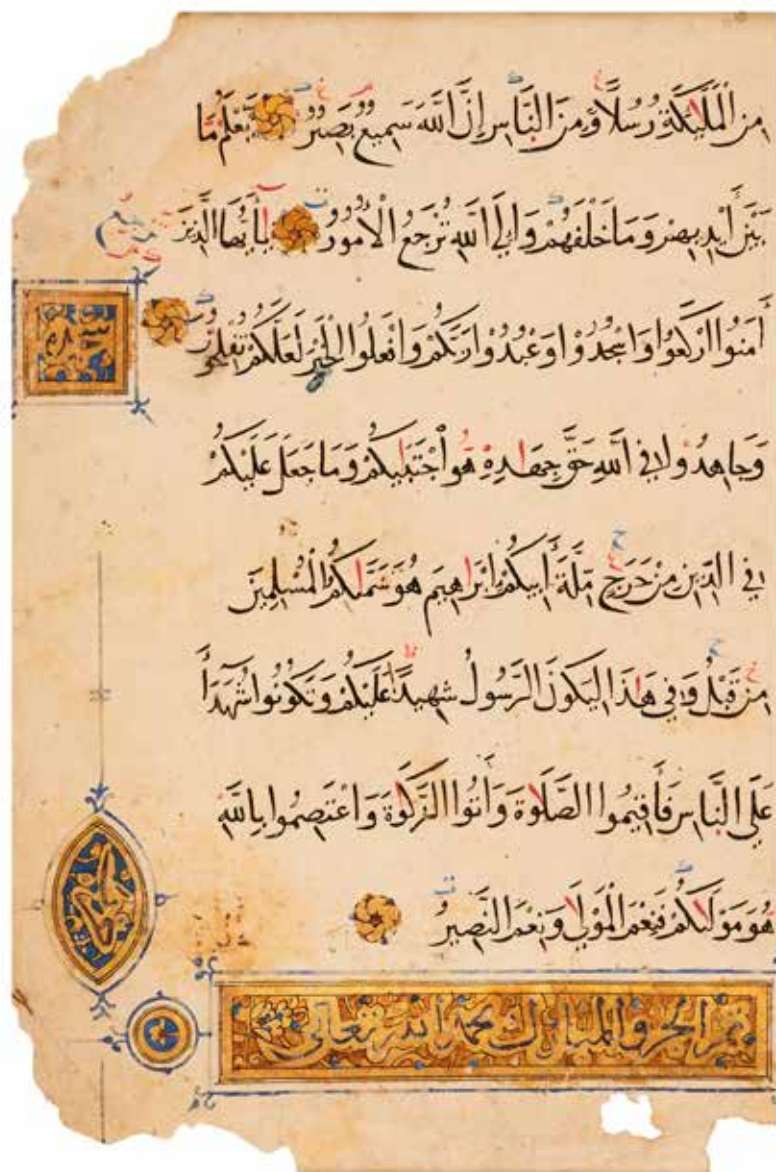 مِنَ الْمَلَٰئِكَةِ رُسُلًا وَمِنَ النَّاسِ إِنَّ اللَّهَ سَمِيعٌ بَصِيرٌ يَعْلَمُ مَا
بَيْنَ أَيْدِيهِمْ وَمَا خَلْفَهُمْ وَإِلَى اللَّهِ تُرْجَعُ الْأُمُورُ يَا أَيُّهَا الَّذِينَ
آمَنُوا ارْكَعُوا وَاسْجُدُوا وَعْبُدُوا رَبَّكُمْ وَافْعَلُوا الْخَيْرَ لَعَلَّكُمْ تُفْلِحُونَ
سجدة
وَجَاهِدُوا فِي اللَّهِ حَقَّ جِهَادِهِ هُوَ اجْتَبَيٰكُمْ وَمَا جَعَلَ عَلَيْكُمْ
فِي الدِّينِ مِنْ حَرَجٍ مِلَّةَ أَبِيكُمْ إِبْرَاهِيمَ هُوَ سَمَّىٰكُمُ الْمُسْلِمِينَ
مِنْ قَبْلُ وَفِي هَٰذَا لِيَكُونَ الرَّسُولُ شَهِيدًا عَلَيْكُمْ وَتَكُونُوا شُهَدَاءَ
عَلَى النَّاسِ فَأَقِيمُوا الصَّلَاوةَ وَآتُوا الزَّكَاوةَ وَاعْتَصِمُوا بِاللَّهِ
هُوَ مَوْلَاكُمْ فَنِعْمَ الْمَوْلَى وَنِعْمَ النَّصِيرُ
تم الجزو المبارك بحمد الله تعالى